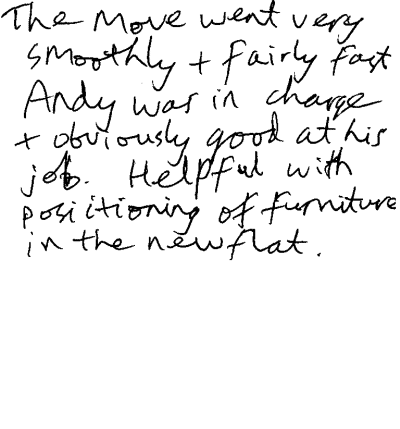 The Move went very
smoothly + fairly fast
Andy was in charge
+ obviously good at his
job. Helpful with
positioning of furniture
in the new flat.